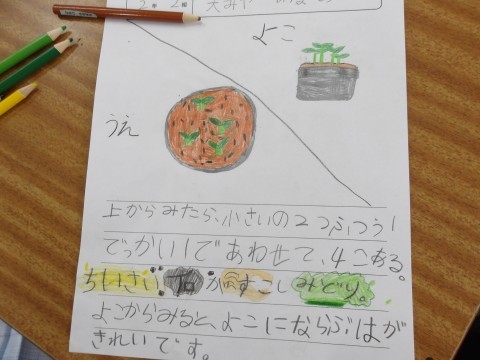 よこ
うえ
上からみたら、小さいの2つふつう1
でっかい1であわせて、4こある。
ちいさい
すこしみどり。
よこからみると、よこにならぶはが
きれいです。